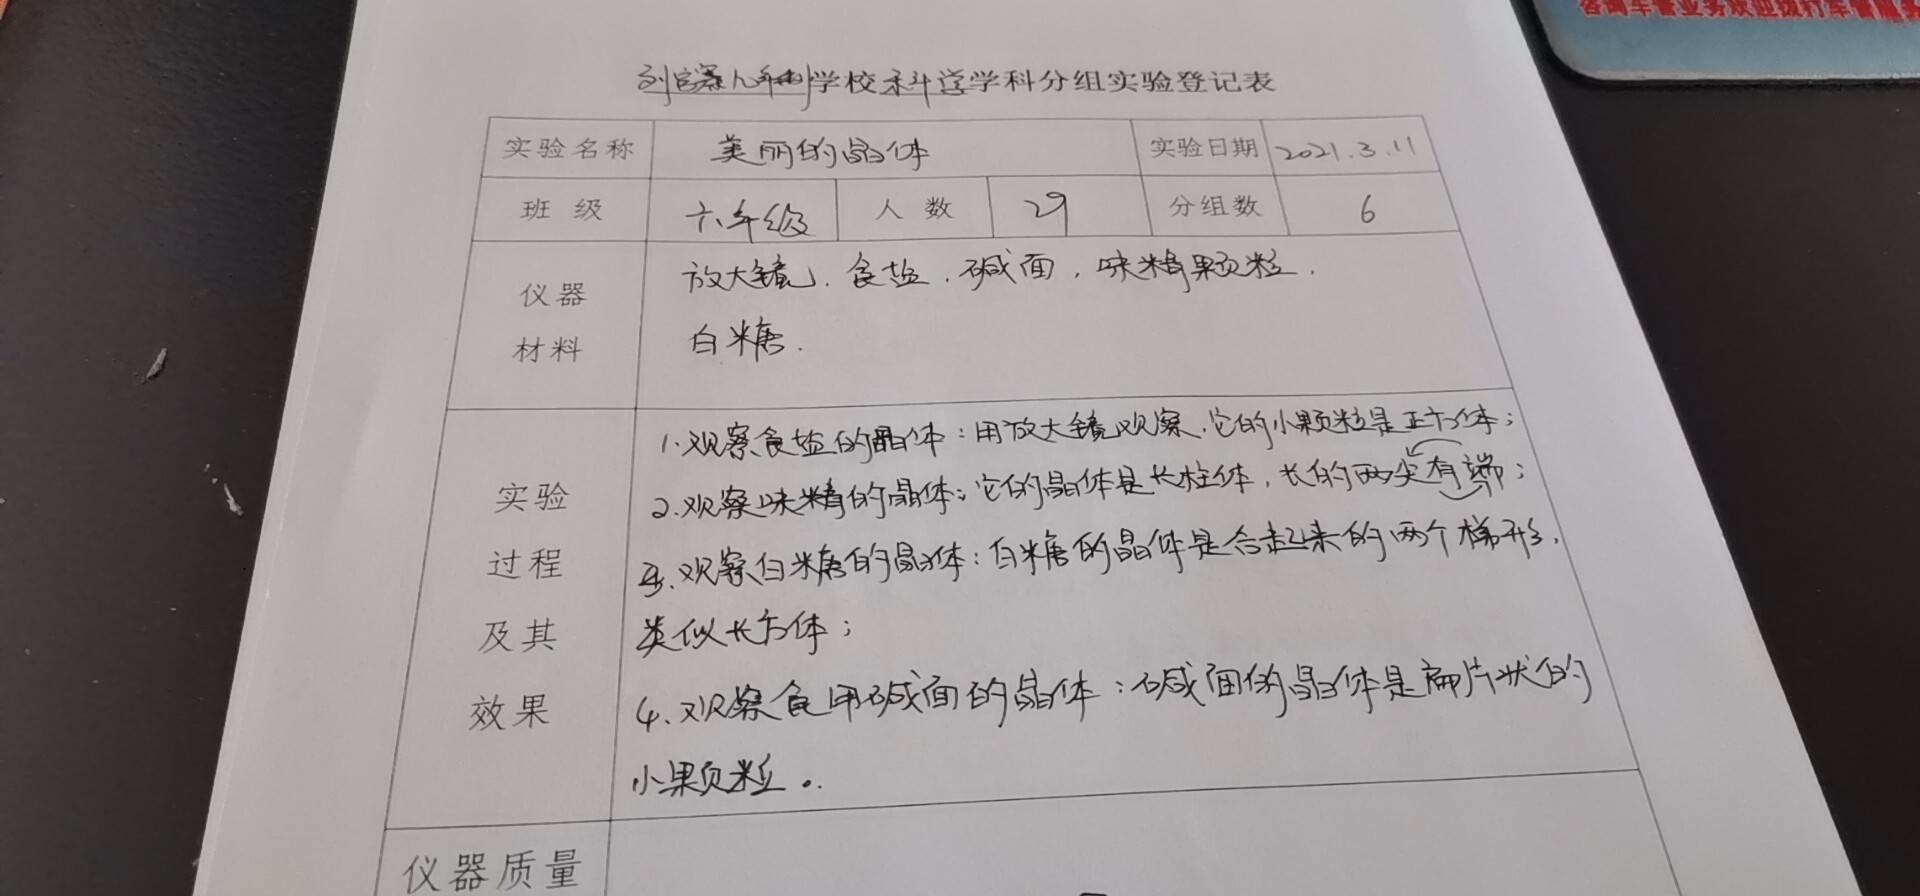 咨询车管业务欢迎拨打车管服务
刘官寨九年制学校科学学科分组实验登记表
实验名称 美丽的晶体 实验日期 2021.3.11
班级 六年级 人数 29 分组数 6
仪器 放大镜、食盐、碱面，味精颗粒.
材料 白米糖.
1.观察食盐的晶体：用放大镜观察，它的小颗粒是正方体；
实验 2.观察味精的晶体：它的晶体是长柱体，长的两尖有端；
过程 3.观察白米糖的晶体：白米糖的晶体是合起来的两个梯形，
及其 类似长方体；
效果 4.观察食用碱面的晶体：碱面的晶体是扁片状的
小颗粒。
仪器质量